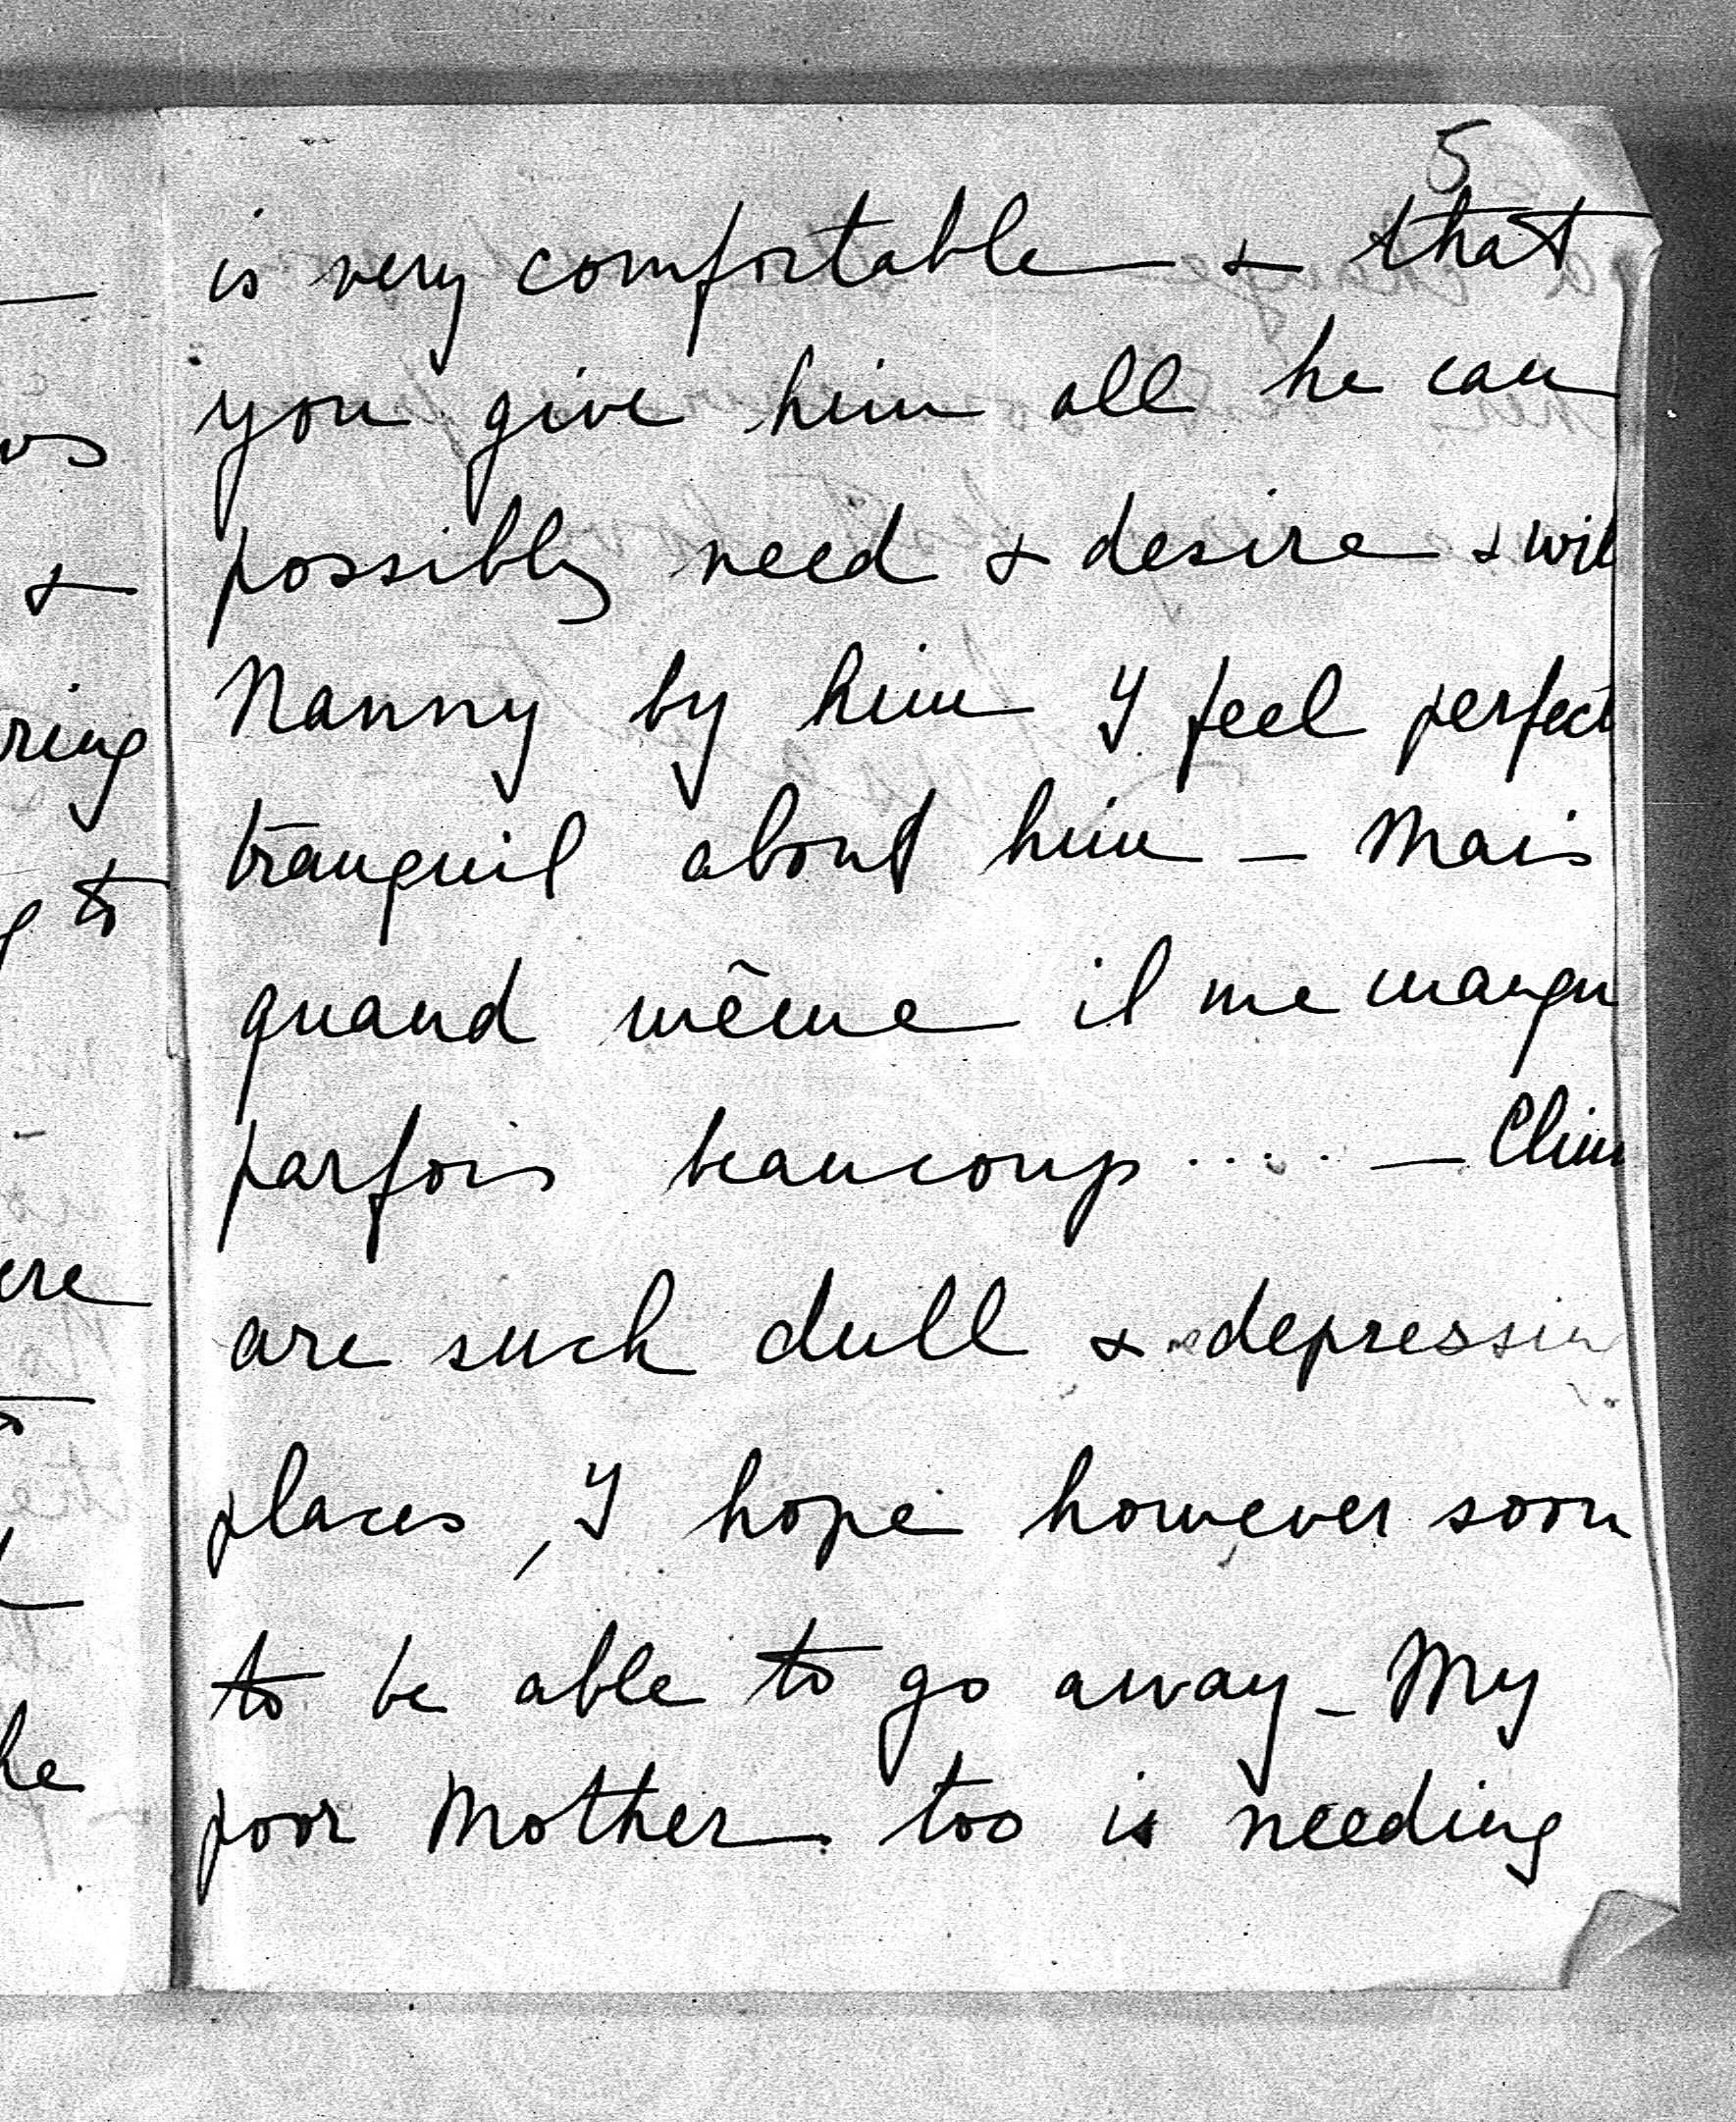 5
is very comfortable & that
you give him all he can
possibly need & desire & wit
Nanny by him I feel perfect
tranquil about him – Mais
quand même il me manqu
parfois beaucoup .... – Clini
are such dull & depressin
places, I hope however soon
to be able to go away – My
poor Mother too is needing
&
ring
to
ere
he